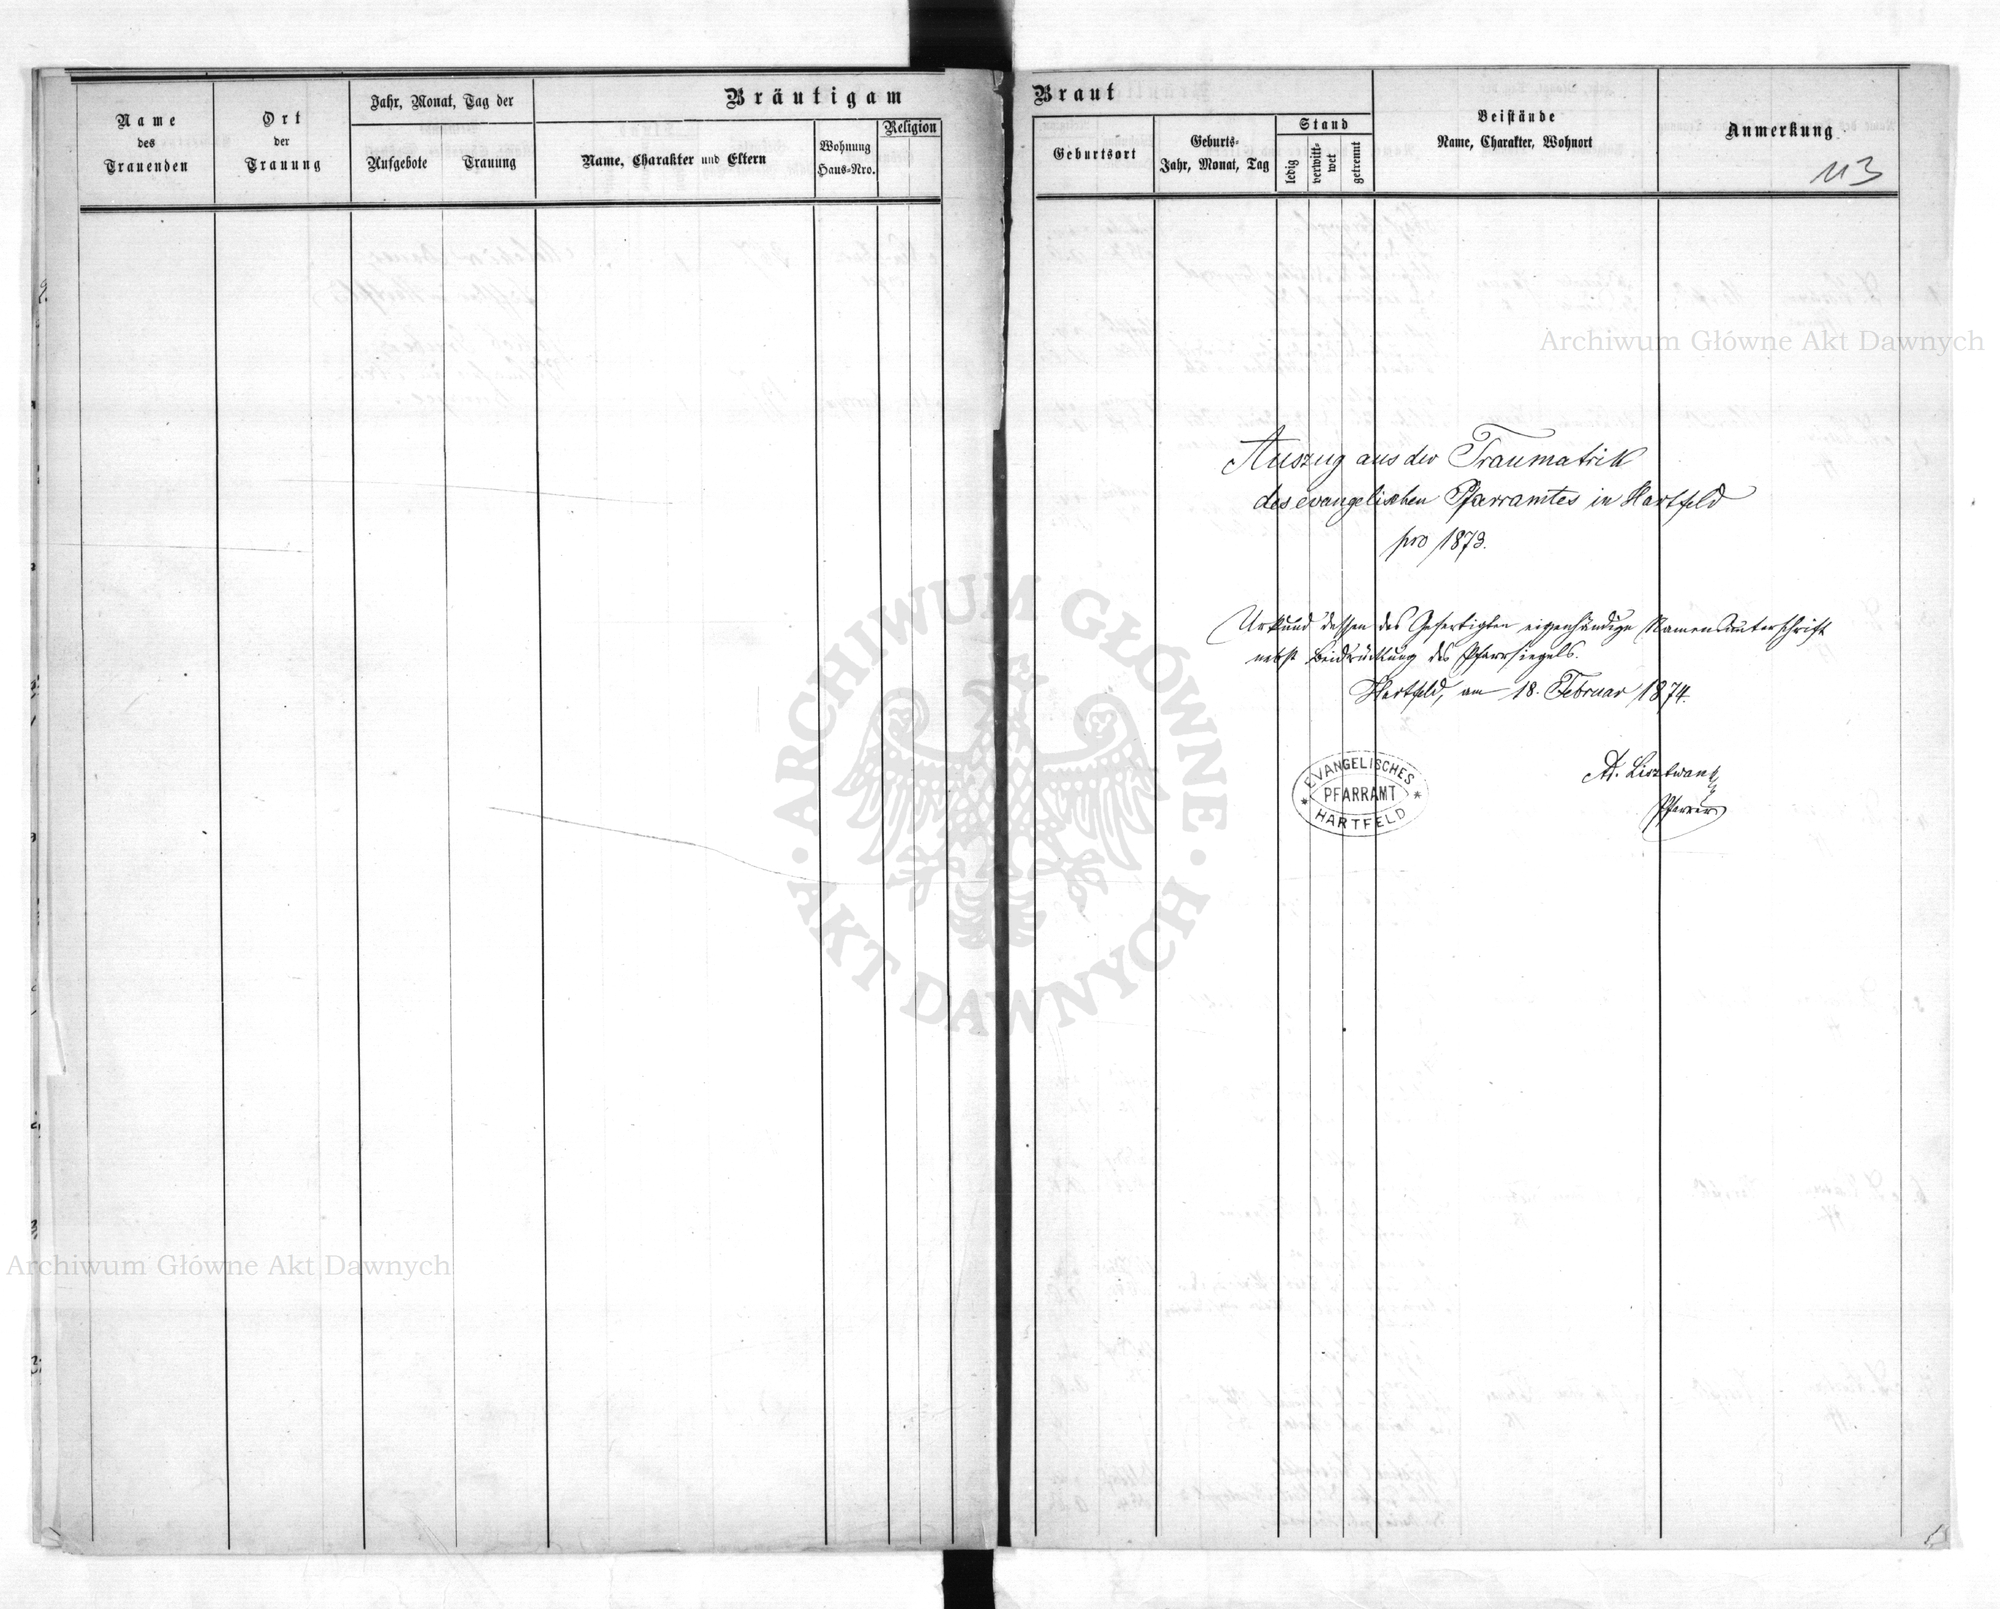 Bräutigam
Name
des
Trauenden
Ort
der
Trauung
Jahr, Monat, Tag der
Aufgebote
Trauung
Name, Charakter und Eltern
Wohnung
Haus-Nro.
Religion
Braut
Geburtsort
Geburts-
Jahr, Monat, Tag
Stand
ledig
verwitt-
wet
getrennt
Beistände
Name, Charakter, Wohnort
Anmerkung
113
Archiwum Główne Akt Dawnych
Auszug aus der Traumatrik
des evangelischen Pfarramtes in Hartfeld
pro 1873.
Urkund dessen des Gefertigten eigenhändige Namensunterschrift
nebst Beidrückung des Pfarrsiegels.
Hartfeld, am 18. Februar 1874.
EVANGELISCHES
PFARRAMT
HARTFELD
Pfarrer
ARCHIWUM GŁÓWNE
AKT DAWNYCH
Archiwum Główne Akt Dawnych